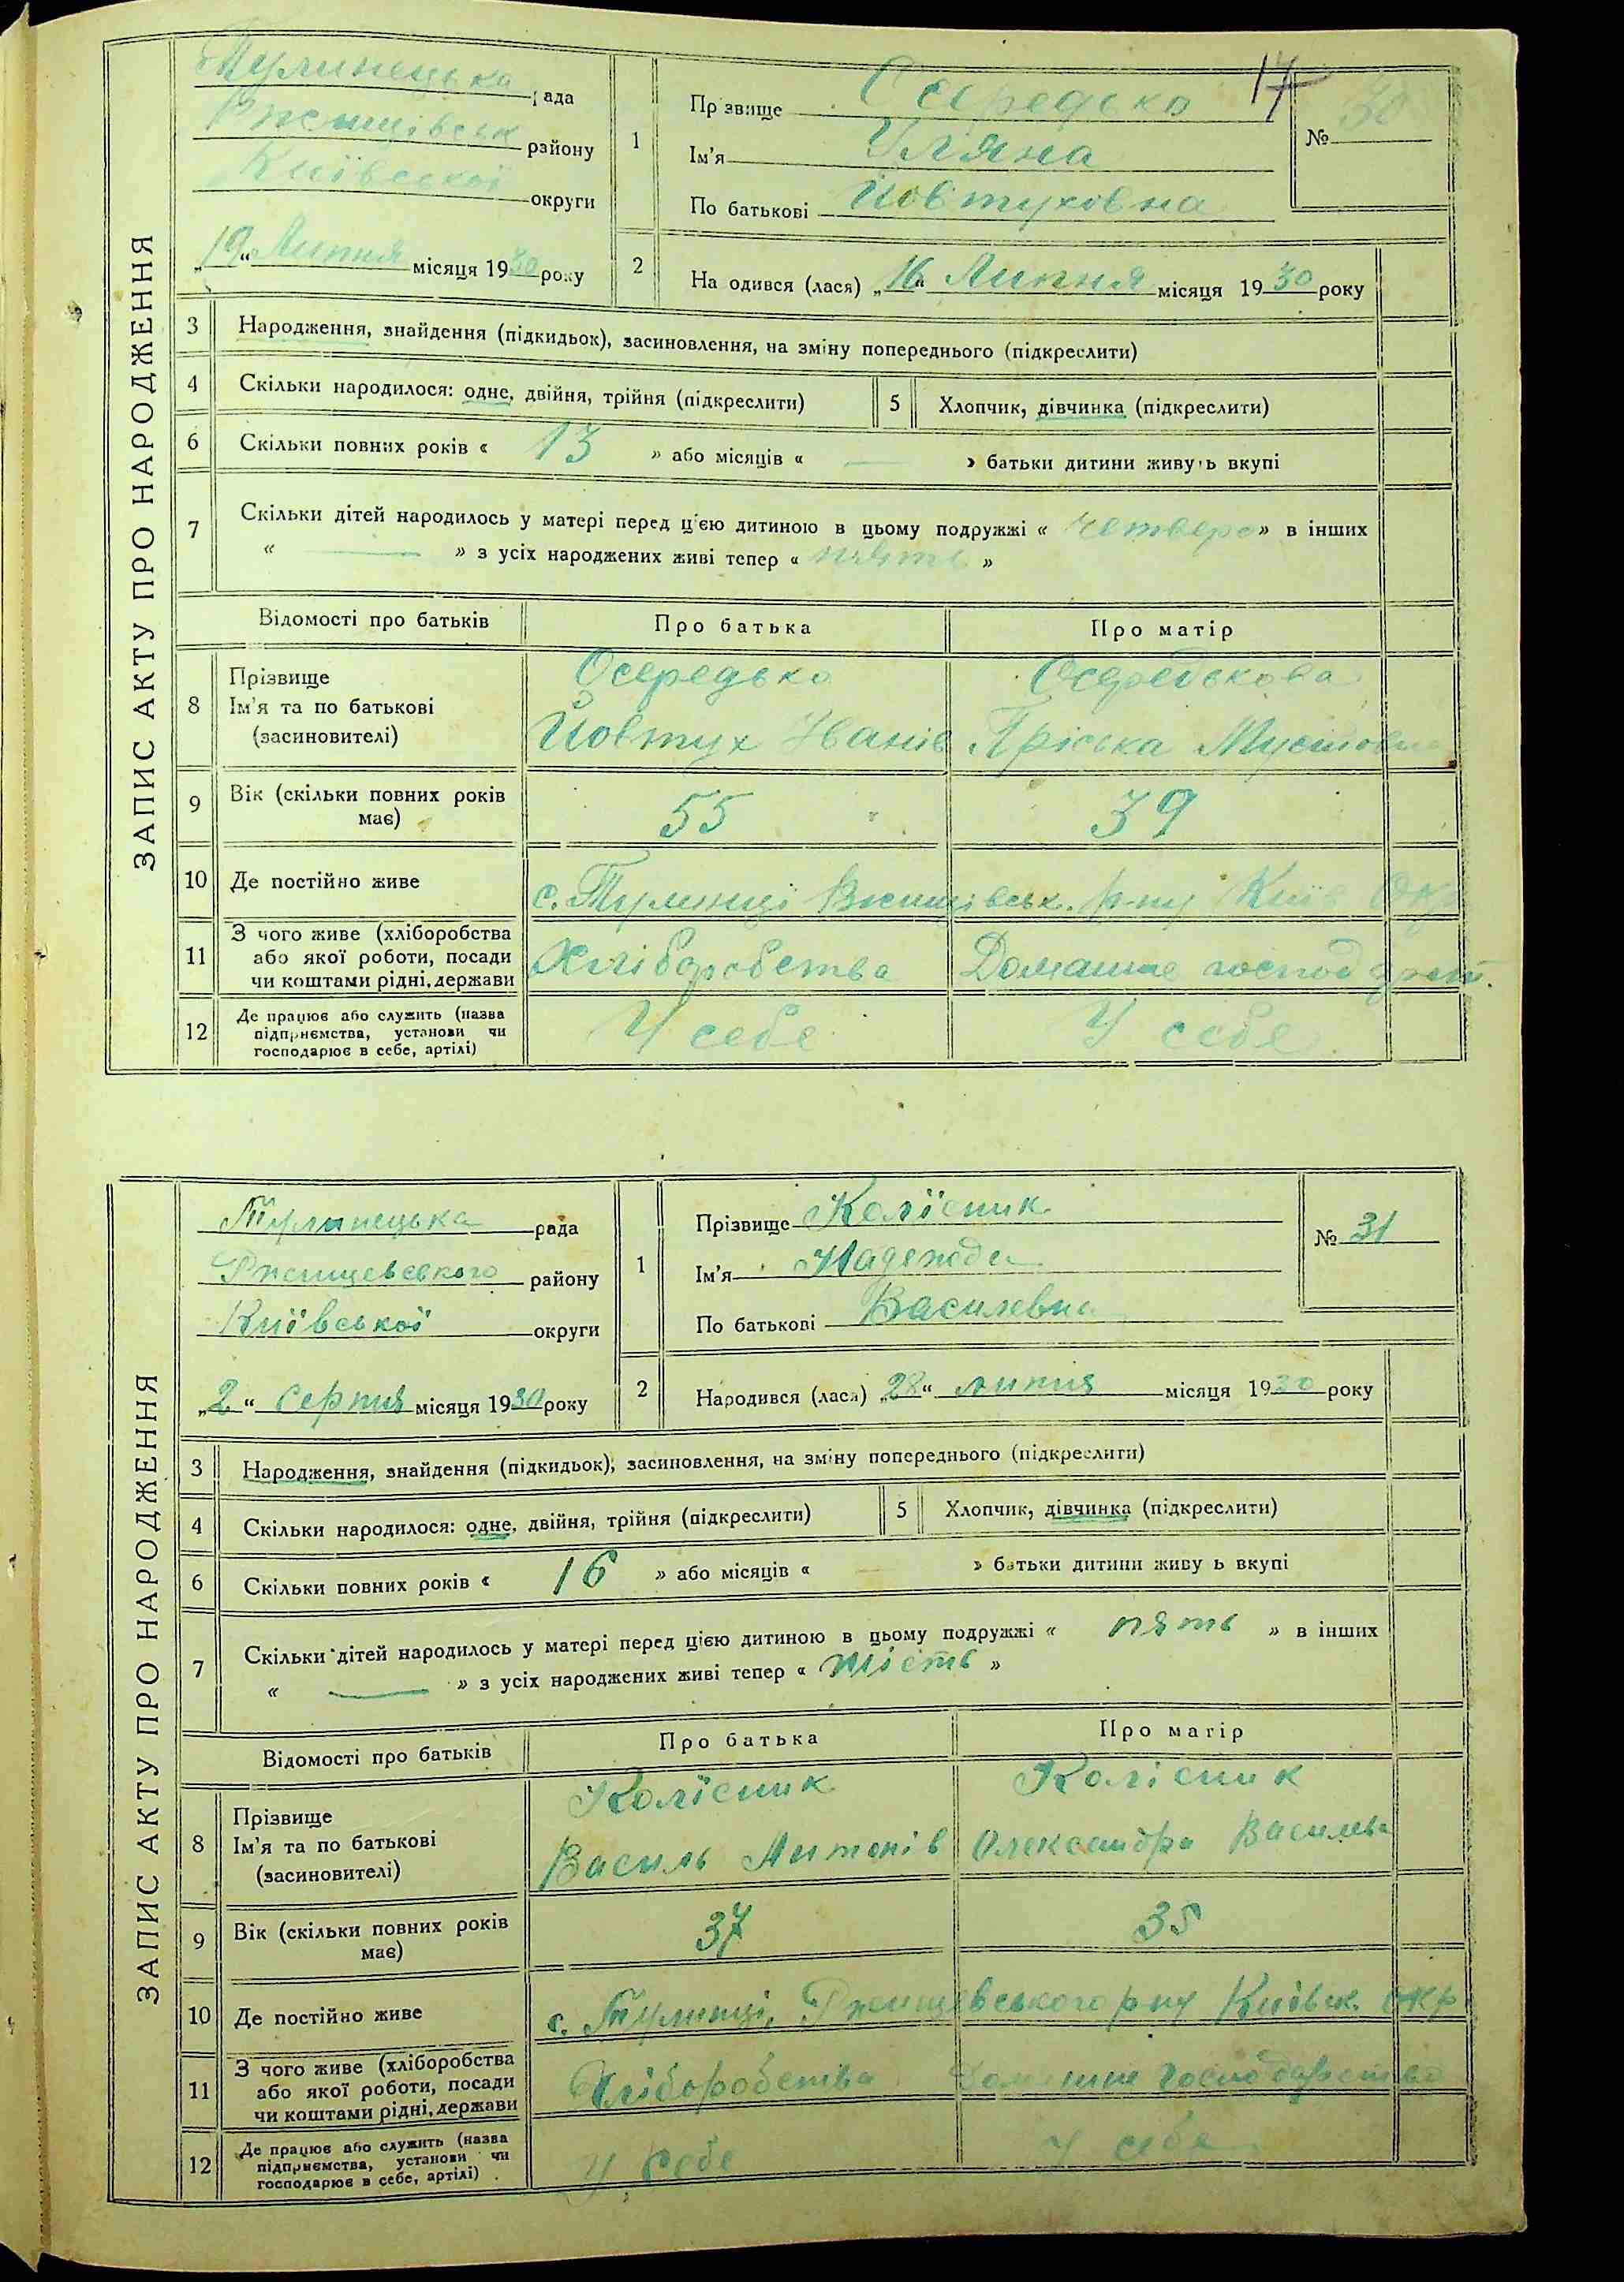 17
ЗАПИС АКТУ ПРО НАРОДЖЕННЯ
Тулинецька рада
Ржищівськ району
Київської округи
„19“ Липня місяця 1930 року
1
Прізвище Осередько
Ім'я Уляна
По батькові Йовтуховна
№ 30
2
На одився (лася) „16“ Липня місяця 1930 року
3 Народження, знайдення (підкидьок), засиновлення, на зміну попереднього (підкреслити)
4 Скільки народилося: одне, двійня, трійня (підкреслити)
5 Хлопчик, дівчинка (підкреслити)
6 Скільки повних років « 13 » або місяців « — » батьки дитини живуть вкупі
7 Скільки дітей народилось у матері перед цією дитиною в цьому подружжі « четверо» в інших
« — » з усіх народжених живі тепер « пять »
Відомості про батьків
Про батька
Про матір
8 Прізвище
Ім'я та по батькові
(засиновителі)
Осередько
Йовтух Іванів
Осередькова
Пріська
9 Вік (скільки повних років
має)
55
39
10 Де постійно живе
с. Тулинці Ржищівськ. р-ну Київ Окр
11 З чого живе (хліборобства
або якої роботи, посади
чи коштами рідні, держави
Хліборобства
Домашне господарст.
12 Де працює або служить (назва
підприємства, установи чи
господарює в себе, артілі)
У себе
У себе
ЗАПИС АКТУ ПРО НАРОДЖЕННЯ
Тулинецька рада
Ржищевського району
Київської округи
„2“ серпня місяця 1930 року
1
Прізвище Колісник
Ім'я Надежда
По батькові Василевна
№ 31
2
Народився (лася) „28“ липня місяця 1930 року
3 Народження, знайдення (підкидьок), засиновлення, на зміну попереднього (підкреслити)
4 Скільки народилося: одне, двійня, трійня (підкреслити)
5 Хлопчик, дівчинка (підкреслити)
6 Скільки повних років « 16 » або місяців « — » батьки дитини живу ь вкупі
7 Скільки дітей народилось у матері перед цією дитиною в цьому подружжі « пять » в інших
« — » з усіх народжених живі тепер « шість »
Відомості про батьків
Про батька
Про матір
8 Прізвище
Ім'я та по батькові
(засиновителі)
Колісник
Василь Антонів
Колісник
Олександра Василева
9 Вік (скільки повних років
має)
37
35
10 Де постійно живе
с. Тулинці, Ржищівського р ну Київськ. окр
11 З чого живе (хліборобства
або якої роботи, посади
чи коштами рідні, держави
Хліборобства
Домашне господарство
12 Де працює або служить (назва
підприємства, установи чи
господарює в себе, артілі)
У себе
У себе